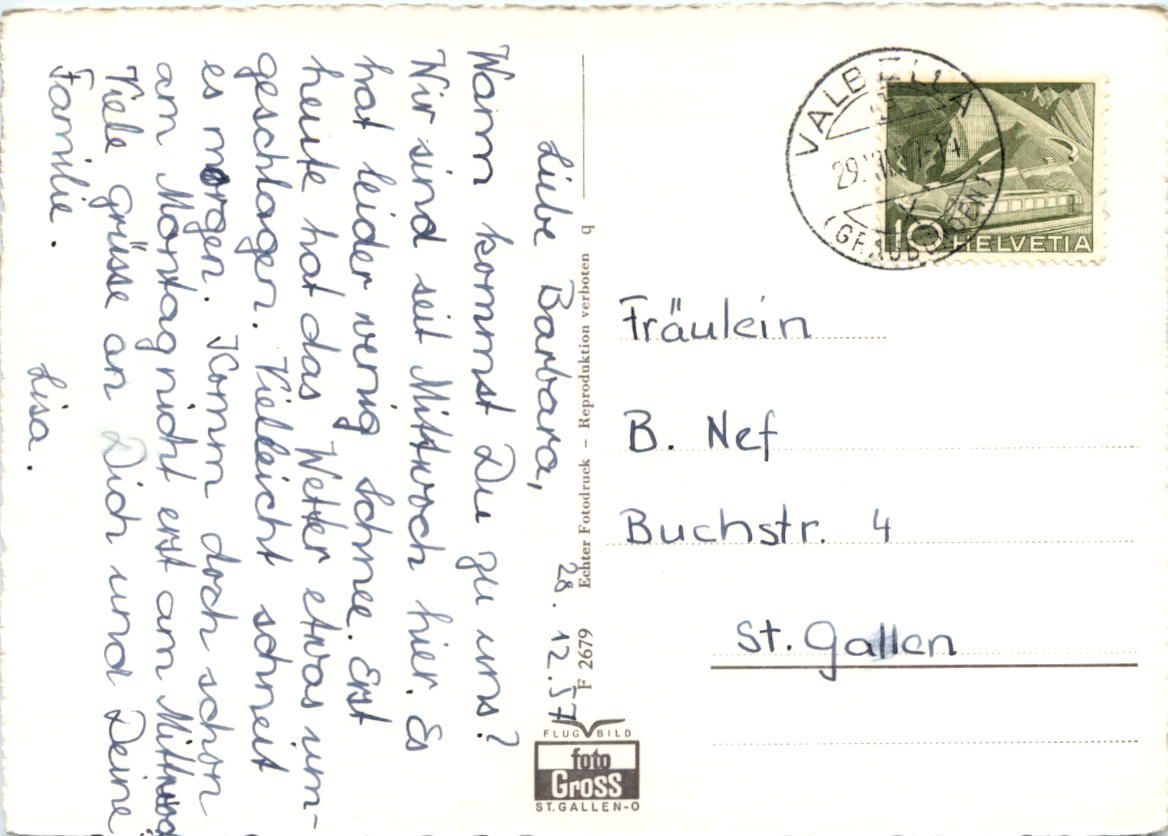 28. 12. 57
Liebe Barbara,
Wann kommst Du zu uns?
Wir sind seit Mittwoch hier. Es
hat leider wenig Schnee. Erst
heute hat das Wetter etwas um-
geschlagen. Vielleicht schneit
es morgen. Komm doch schon
am Montag nicht erst am Mittwoch
Viele grüsse an Dich und Deine
Familie.
Lisa.
F 2679 Echter Fotodruck – Reproduktion verboten q
FLUG BILD
foto
GROSS
ST.GALLEN-O
VALBELLA
(GRAUBÜNDEN)
10 HELVETIA
Fräulein
B. Nef
Buchstr. 4
St. Gallen